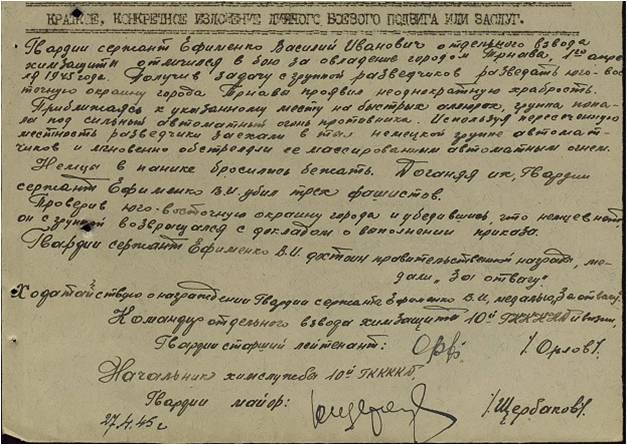 КРАТКОЕ, КОНКРЕТНОЕ ИЗЛОЖЕНИЕ ЛИЧНОГО БОЕВОГО ПОДВИГА ИЛИ ЗАСЛУГ.
Гвардии сержант Ефименко Василий Иванович отдельного взвода
химзащиты отличился в бою за овладение городом Трнава, 1го апре-
ля 1945 года. Получив задачу с группой разведчиков разведать юго-вос
точную окраину города Трнава проявил неоднократную храбрость.
Приближаясь к указанному месту на быстрых аллюрах, группа попа-
ла под сильный автоматный огонь противника. Используя пересеченную
местность разведчики заехали в тыл немецкой группе автомат-
чиков и мгновенно обстреляли ее массированным автоматным огнем.
Немцы в панике бросились бежать. Догоняя их, Гвардии
сержант Ефименко В.И. убил трех фашистов.
Проверив юго-восточную окраину города и убедившись, что немцев нет,
он с группой возвращался с докладом о выполнении приказа.
Гвардии сержант Ефименко В.И. достоин правительственной награды, ме-
дали „За отвагу".
Ходатайствую о награждении Гвардии сержанта Ефименко В.И. медалью „За отвагу".
Командир отдельного взвода химзащиты 10й дивизии,
Гвардии старший лейтенант: /Орлов/.
Начальник химслужбы 10й
Гвардии майор: /Щербаков/.
27.4.45 г